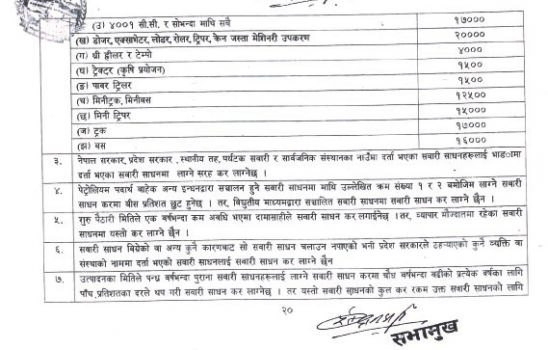 (उ) ४००१ सी.सी. र सोभन्दा माथि सबै १७०००
(ख) डोजर, एक्साभेटर, लोडर, रोलर, ट्रिपर, केन जस्ता मेशिनरी उपकरण २००००
(ग) थ्री ह्वीलर र टेम्पो ४०००
(घ) ट्रेक्टर (कृषि प्रयोजन) १५००
(ङ) पावर ट्रिलर १५००
(च) मिनीट्रक, मिनीबस १२५००
(छ) मिनी ट्रिपर १५०००
(ज) ट्रक १७०००
(झ) बस १६०००
३. नेपाल सरकार, प्रदेश सरकार ,स्थानीय तह, पर्यटक सवारी र सार्वजनिक संस्थानका नाउँमा दर्ता भएका सवारी साधनहरूलाई भाडामा
दर्ता भएका सवारी साधनमा लाग्ने सरह कर लाग्नेछ ।
४. पेट्रोलियम पदार्थ बाहेक अन्य इन्धनद्वारा सञ्चालन हुने सवारी साधनमा माथि उल्लेखित क्रम संख्या १ र २ बमोजिम लाग्ने सवारी
साधन करमा बीस प्रतिशत छुट हुनेछ । तर, विधुतीय माध्यमद्वारा सञ्चालित सवारी साधनमा सवारी साधन कर लाग्ने छैन ।
५. शुरु पैठारी मितिले एक वर्षभन्दा कम अवधि भएमा दामासाहीले सवारी साधन कर लगाईनेछ । तर, व्यापार मौज्दातमा रहेका सवारी
साधनमा यस्तो कर लाग्ने छैन ।
६. सवारी साधन बिग्रेको वा अन्य कुनै कारणबाट सो सवारी साधन चलाउन नपाएको भनी प्रदेश सरकारले ठहर्‍याएको कुनै व्यक्ति वा
संस्थाको नाममा दर्ता भएको सवारी साधनलाई सवारी साधन कर लाग्ने छैन
७. उत्पादनका मितिले पन्ध्र वर्षभन्दा पुराना सवारी साधनहरुलाई लाग्ने सवारी साधन करमा पाँध वर्षभन्दा बढीको प्रत्येक वर्षका लागि
पाँच प्रतिशतका दरले थप गरी सवारी साधन कर लाग्नेछ । तर यस्तो सवारी साधनको कुल कर रकम उक्त सवारी साधनको लागि
२०
सभामुख